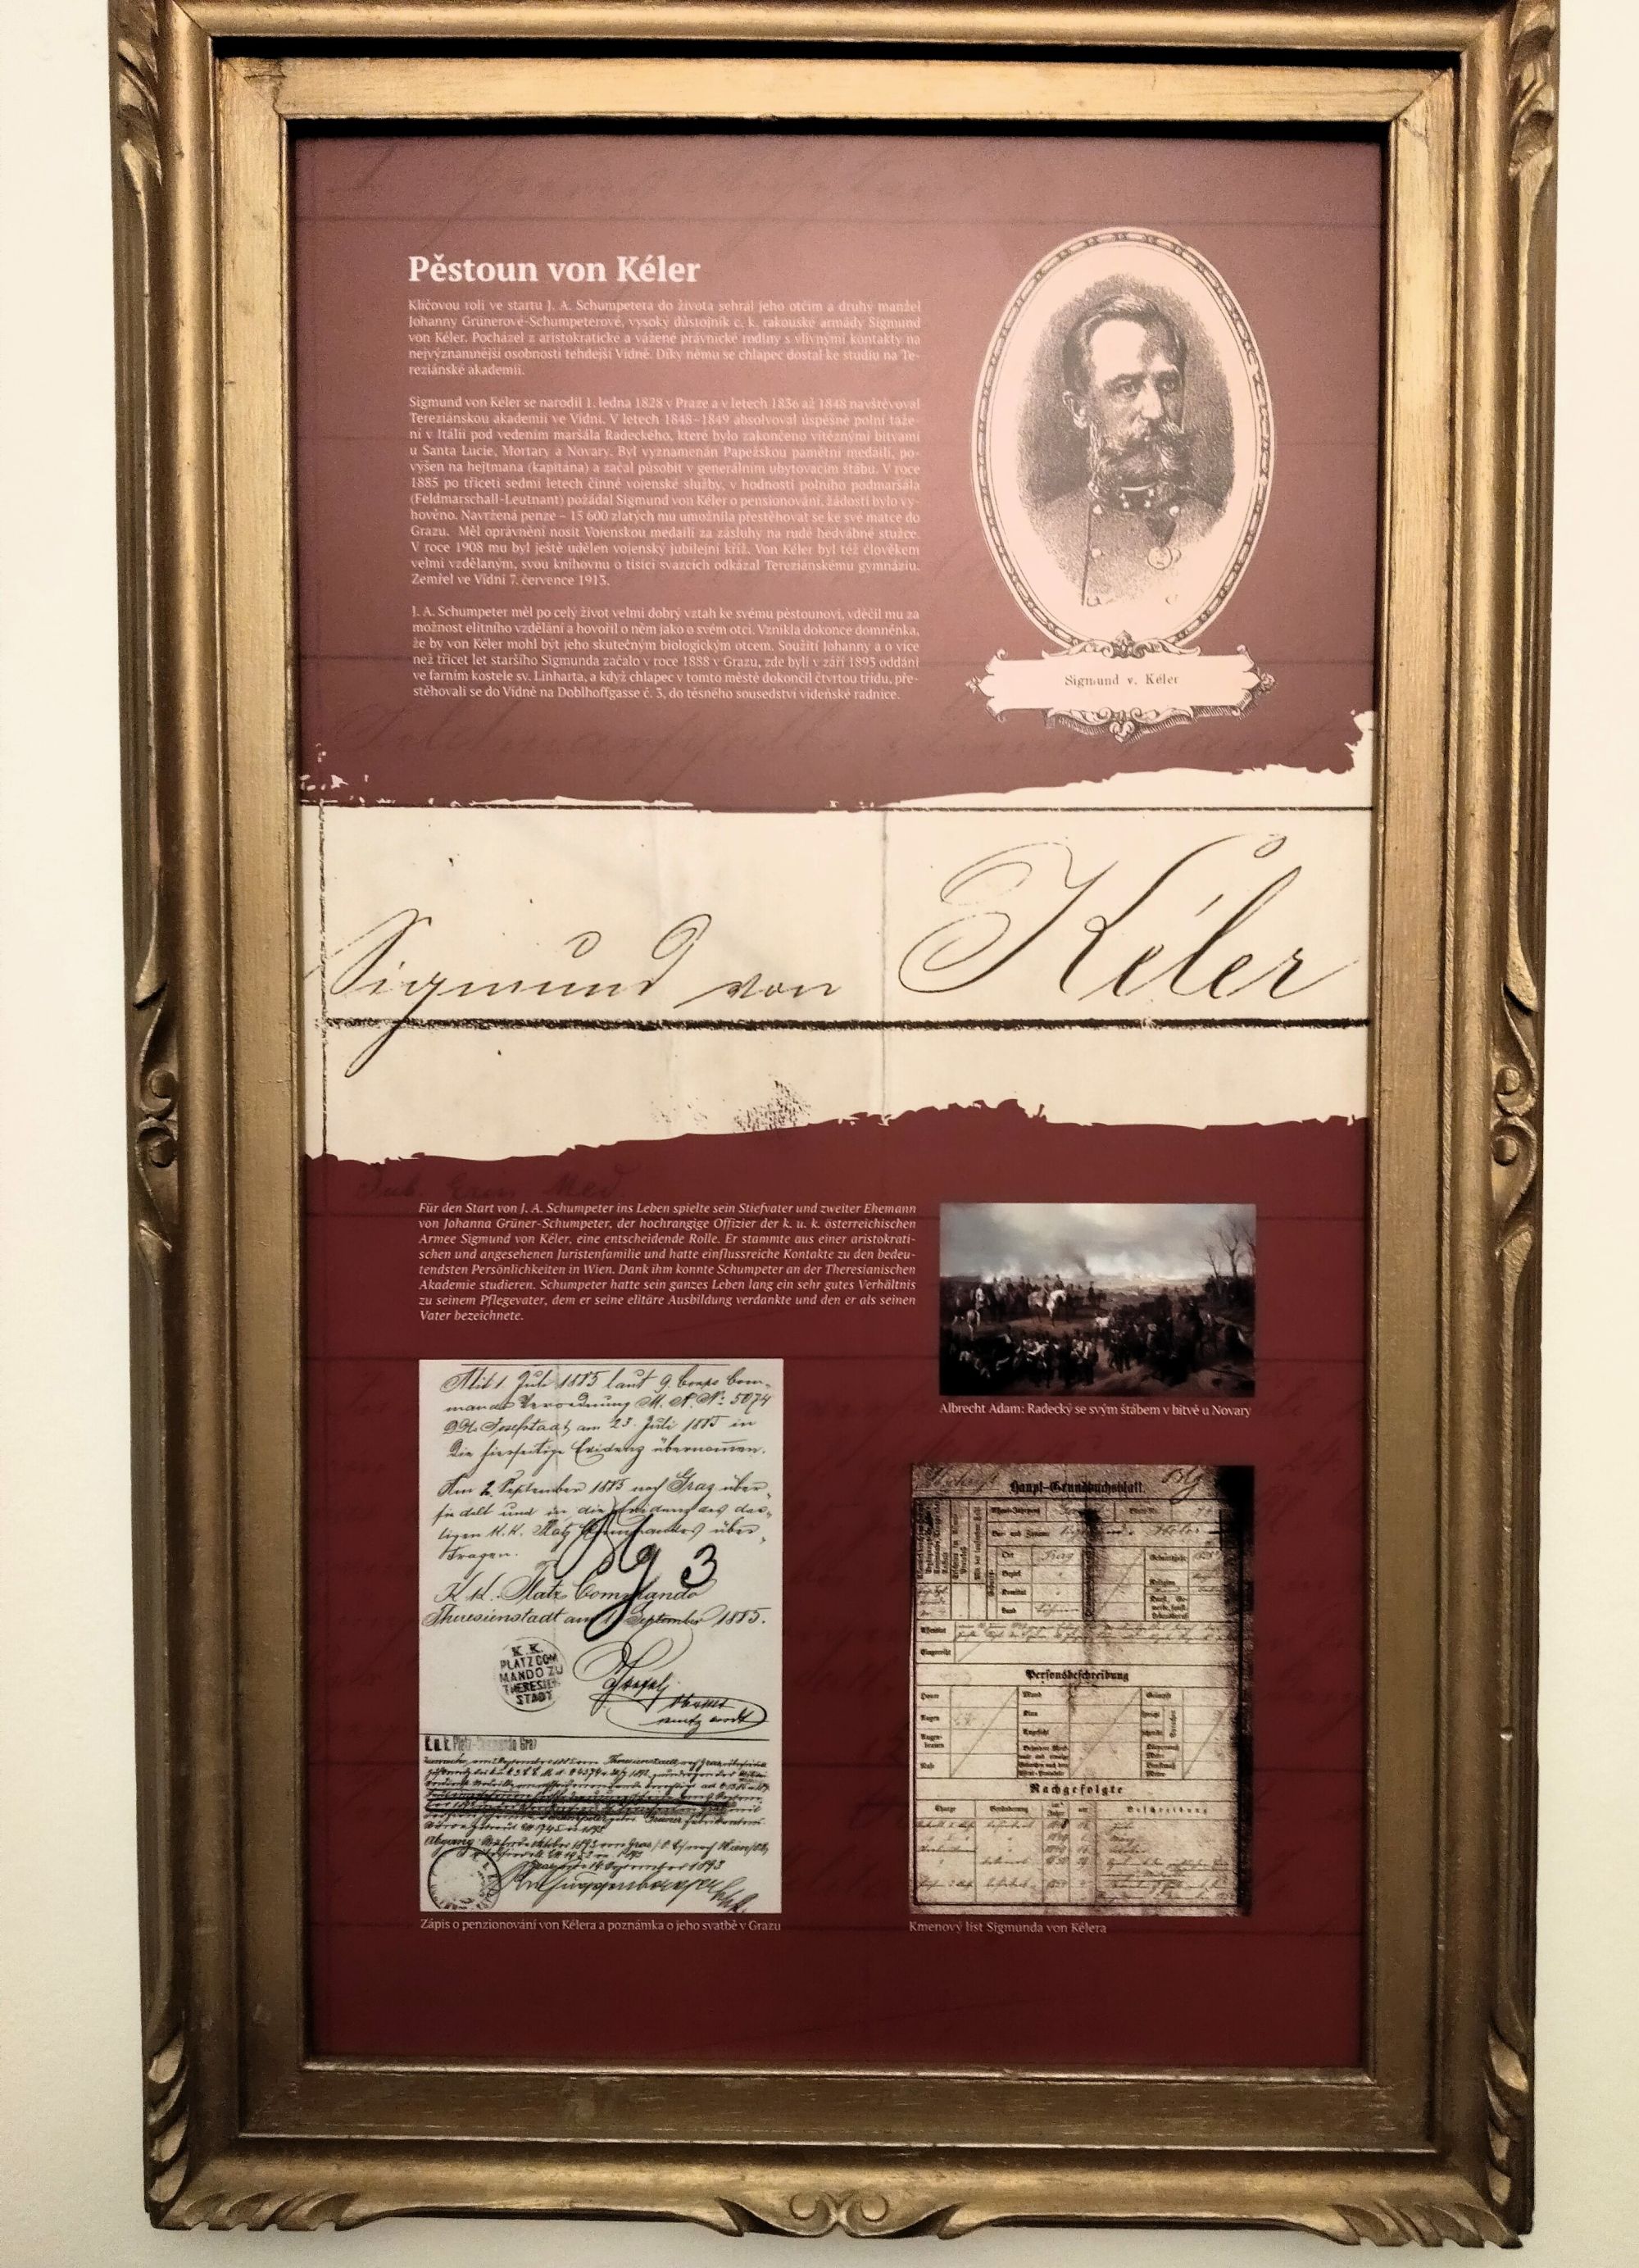 Pěstoun von Kéler
Klíčovou roli ve startu J. A. Schumpetera do života sehrál jeho otčím a druhý manžel
Johanny Grünerové-Schumpeterové, vysoký důstojník c. k. rakouské armády Sigmund
von Kéler. Pocházel z aristokratické a vážené právnické rodiny s vlivnými kontakty na
nejvýznamnější osobnosti tehdejší Vídně. Díky němu se chlapec dostal ke studiu na Te-
reziánské akademii.
Sigmund von Kéler se narodil 1. ledna 1828 v Praze a v letech 1836 až 1848 navštěvoval
Tereziánskou akademii ve Vídni. V letech 1848–1849 absolvoval úspěšné polní taže-
ní v Itálii pod vedením maršála Radeckého, které bylo zakončeno vítěznými bitvami
u Santa Lucie, Mortary a Novary. Byl vyznamenán Papežskou pamětní medailí, po-
výšen na hejtmana (kapitána) a začal působit v generálním ubytovacím štábu. V roce
1885 po třiceti sedmi letech činné vojenské služby, v hodnosti polního podmaršála
(Feldmarschall-Leutnant) požádal Sigmund von Kéler o pensionování, žádosti bylo vy-
hověno. Navržená penze – 15 600 zlatých mu umožnila přestěhovat se ke své matce do
Grazu. Měl oprávnění nosit Vojenskou medaili za zásluhy na rudé hedvábné stužce.
V roce 1908 mu byl ještě udělen vojenský jubilejní kříž. Von Kéler byl též člověkem
velmi vzdělaným, svou knihovnu o tisíci svazcích odkázal Tereziánskému gymnáziu.
Zemřel ve Vídni 7. července 1913.
J. A. Schumpeter měl po celý život velmi dobrý vztah ke svému pěstounovi, vděčil mu za
možnost elitního vzdělání a hovořil o něm jako o svém otci. Vznikla dokonce domněnka,
že by von Kéler mohl být jeho skutečným biologickým otcem. Soužití Johanny a o více
než třicet let staršího Sigmunda začalo v roce 1888 v Grazu, zde byli v září 1893 oddáni
ve farním kostele sv. Linharta, a když chlapec v tomto městě dokončil čtvrtou třídu, pře-
stěhovali se do Vídně na Doblhoffgasse č. 3, do těsného sousedství vídeňské radnice.
Sigmund v. Kéler
Sigmund von Kéler
Für den Start von J. A. Schumpeter ins Leben spielte sein Stiefvater und zweiter Ehemann
von Johanna Grüner-Schumpeter, der hochrangige Offizier der k. u. k. österreichischen
Armee Sigmund von Kéler, eine entscheidende Rolle. Er stammte aus einer aristokrati-
schen und angesehenen Juristenfamilie und hatte einflussreiche Kontakte zu den bedeu-
tendsten Persönlichkeiten in Wien. Dank ihm konnte Schumpeter an der Theresianischen
Akademie studieren. Schumpeter hatte sein ganzes Leben lang ein sehr gutes Verhältnis
zu seinem Pflegevater, dem er seine elitäre Ausbildung verdankte und den er als seinen
Vater bezeichnete.
Albrecht Adam: Radecký se svým štábem v bitvě u Novary
Mit 1. Juli 1885 laut 9. Corps Com-
mando Verordnung M. A. No 5074
Josefstadt am 23. Juli 1885 in
die hierseitige Evidenz übernommen.
Am 2. September 1885 nach Graz über-
siedelt und in die Evidenz des dor-
tigen K.K. Platz Commandos über-
tragen.
Bg 3
K. K. Platz Commando
Theresienstadt am 1. September 1885.
K. K.
PLATZ COM
MANDO ZU
THERESIEN
STADT
K. u. k. Platz-Commando Graz
Zápis o penzionování von Kélera a poznámka o jeho svatbě v Grazu
Haupt-Grundbuchsblatt.
Vor- und Zuname
Kéler
Ort
Prag
Bezirk
Land
Böhmen
Geburtsjahr
Religion
Assentirt
Eingereiht
Personsbeschreibung
Haare
Mund
Augen
Kinn
Angesicht
Augen-
brauen
Nase
Nachgefolgte
Charge
Veränderung
Beschreibung
Kmenový list Sigmunda von Kélera